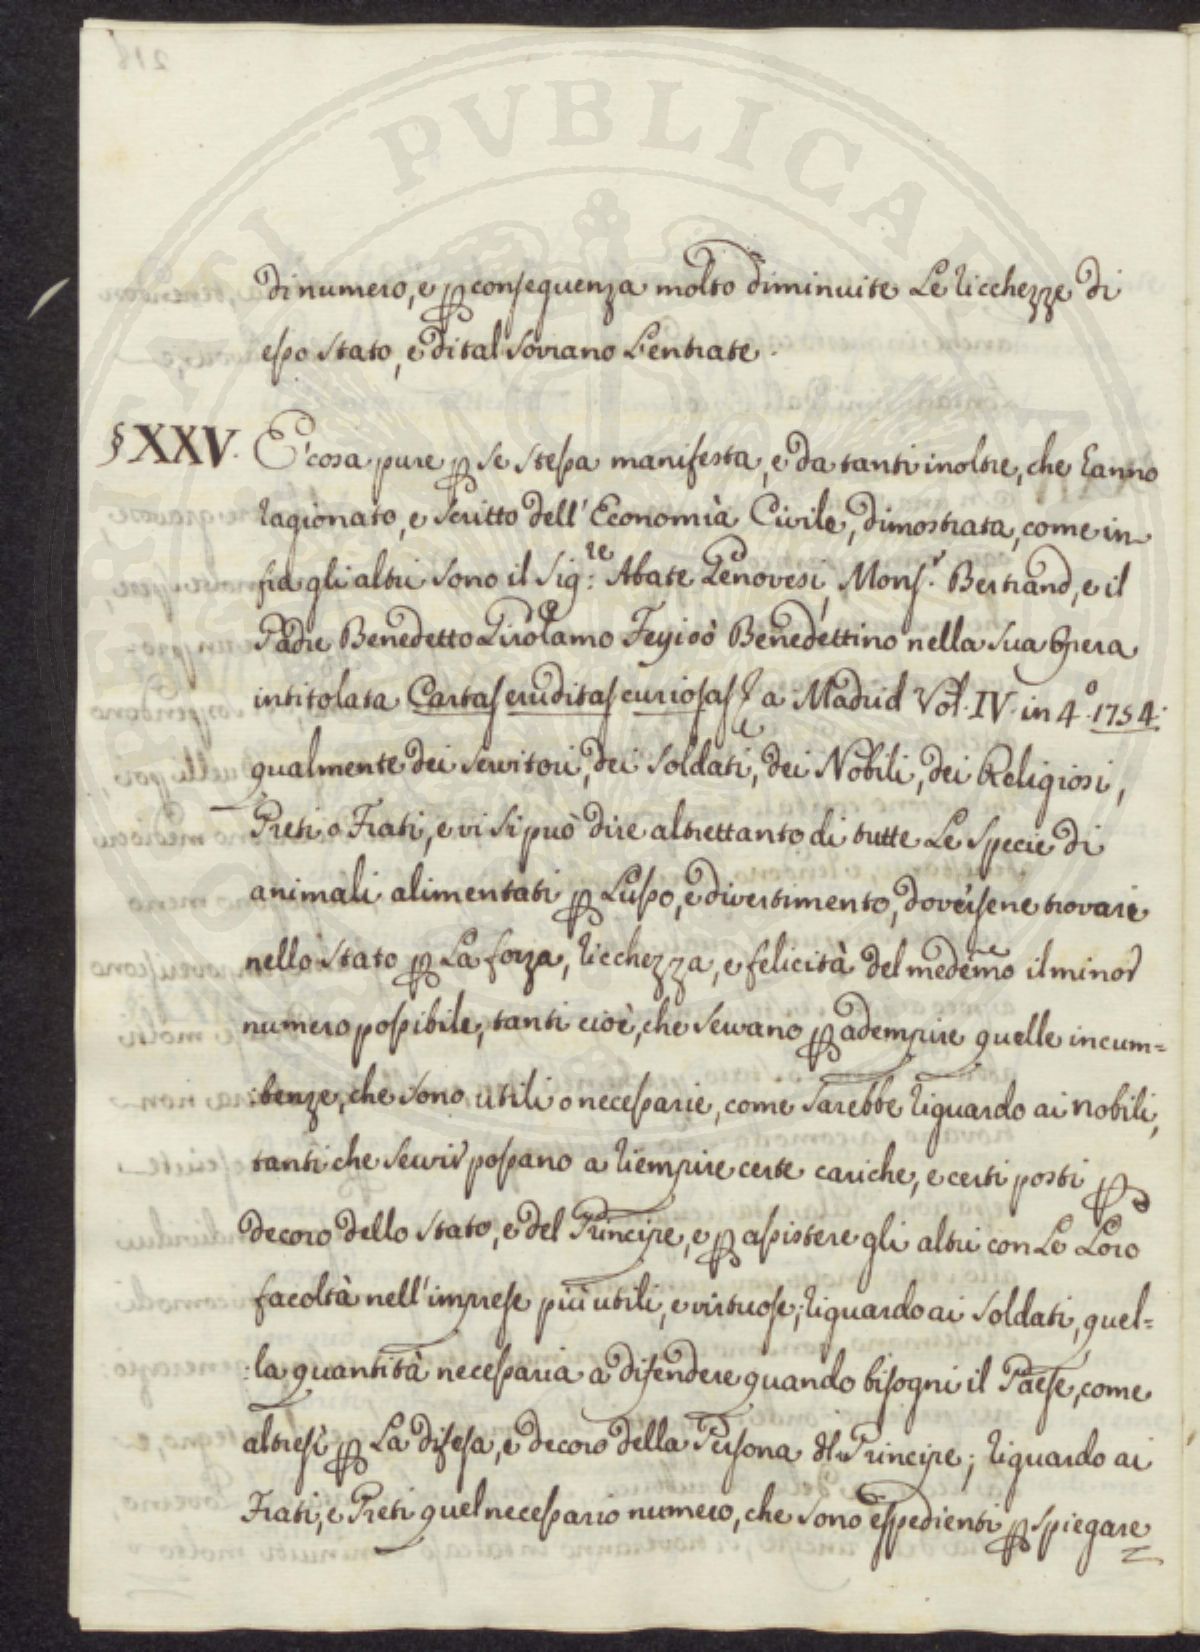 di numero, e ꝑ conseguenza molto diminuite Le ricchezze di
esso stato, e di tal Sovrano L'entrate.
§ XXV. E' cosa pure ꝑ se stessa manifesta, e da tanti inoltre, che hanno
ragionato, e scritto dell' Economià Civile, dimostrata, come in
fra gli altri sono il Sig:re Abate Genovesi, Mons.r Bertrand, e il
Padre Benedetto Girolamo Feyioò Benedettino nella sua Opera
intitolata Cartas eruditas curiosas & a Madrid Vol. IV. in 4.o 1754.
qualmente dei servitori, dei soldati, dei Nobili, dei Religiosi,
Preti o Frati, e vi si può dire altrettanto di tutte Le specie di
animali alimentati ꝑ Lusso, e divertimento, doversene trovare
nello stato ꝑ La forza, ricchezza, e felicità del medemo il minor
numero possibile, tanti cioè, che servano ꝑ adempire quelle incum=
:benze, che sono utili o necessarie, come sarebbe riguardo ai nobili,
tanti che servir possano a riempire certe cariche, e certi posti ꝑ
decoro dello stato, e del Principe, e ꝑ assistere gli altri con Le Loro
facoltà nell' imprese più utili, e virtuose; riguardo ai soldati, quel=
:la quantità necessaria a difendere quando bisogni il Paese, come
altresì ꝑ La difesa, e decoro della Persona del Principe; riguardo ai
Frati, e Preti quel necessario numero, che sono espedienti ꝑ spiegare
PVBLICA